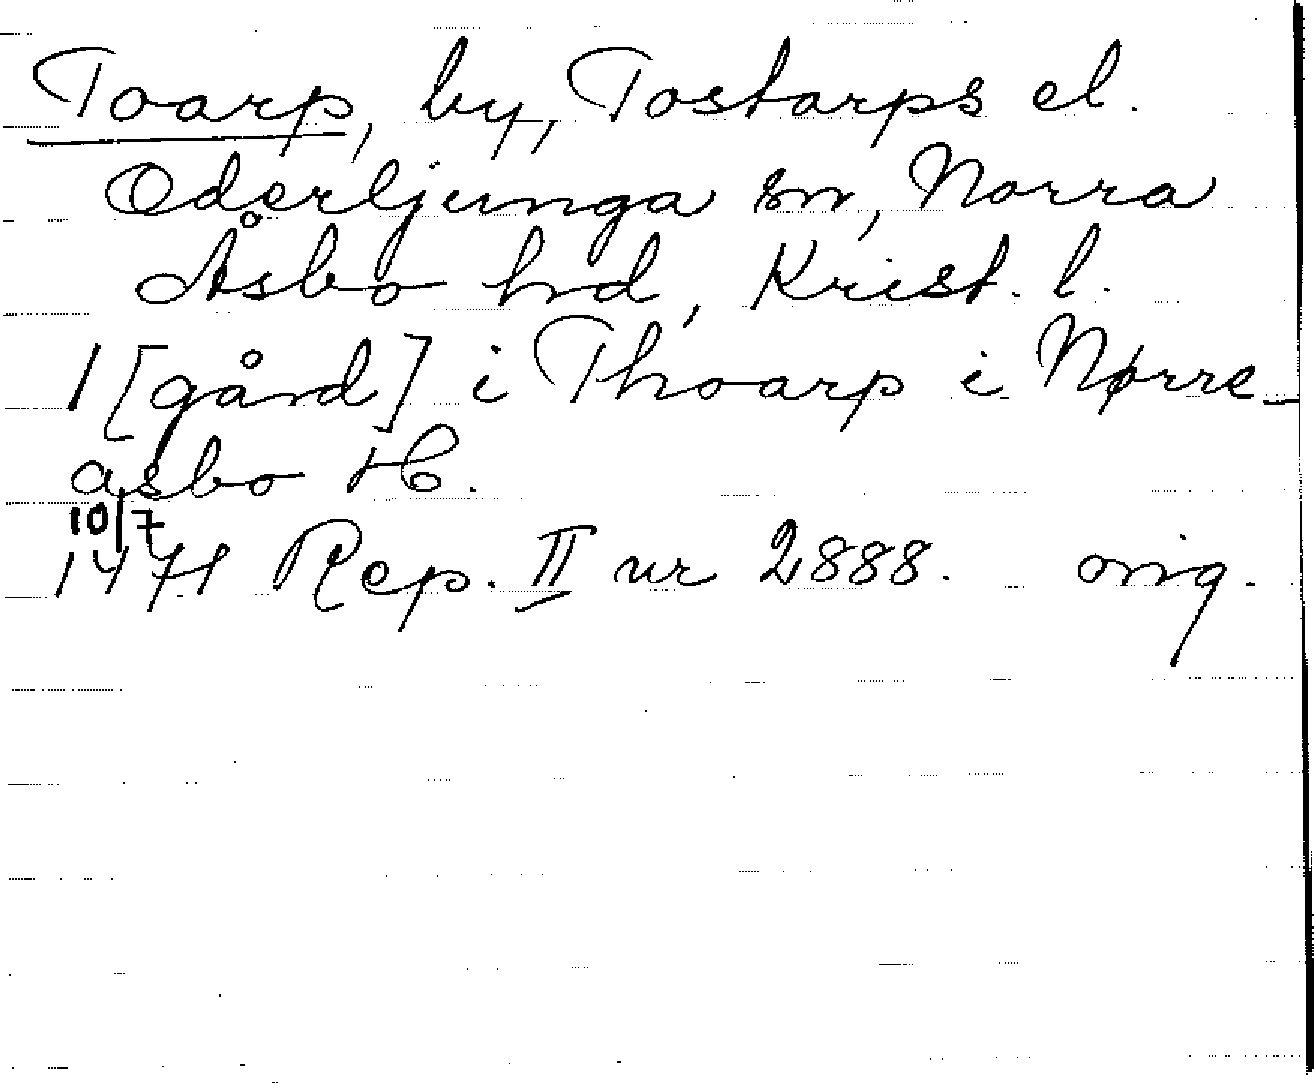 Toarp, by, Tostarps el.
Oderljunga sn, Norra
Åsbo hd, Krist. l.
1 [gård] i Thoarp i Nørre-
asbo H.
10/7
1471 Rep. II nr 2888. orig.